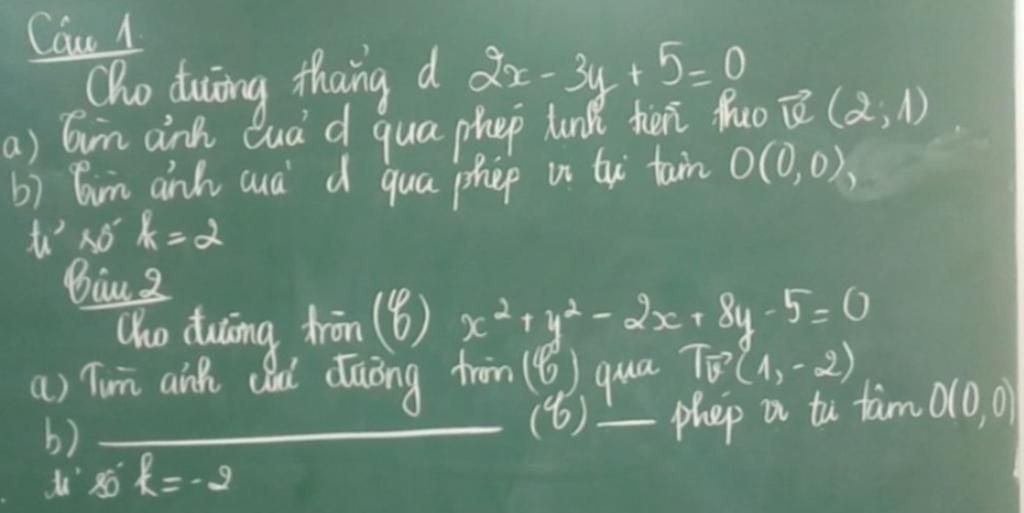 Câu 1.
Cho đường thẳng d 2x - 3y + 5 = 0
a) Tìm ảnh của d qua phép tịnh tiến theo v⃗ (2; 1).
b) Tìm ảnh của d qua phép vị tự tâm O(0,0),
tỉ số k = 2
Câu 2
Cho đường tròn (C) x² + y² - 2x + 8y - 5 = 0
a) Tìm ảnh của đường tròn (C) qua Tv⃗ (1, -2)
b) ———————— (C) — phép vị tự tâm O(0,0)
tỉ số k = -2